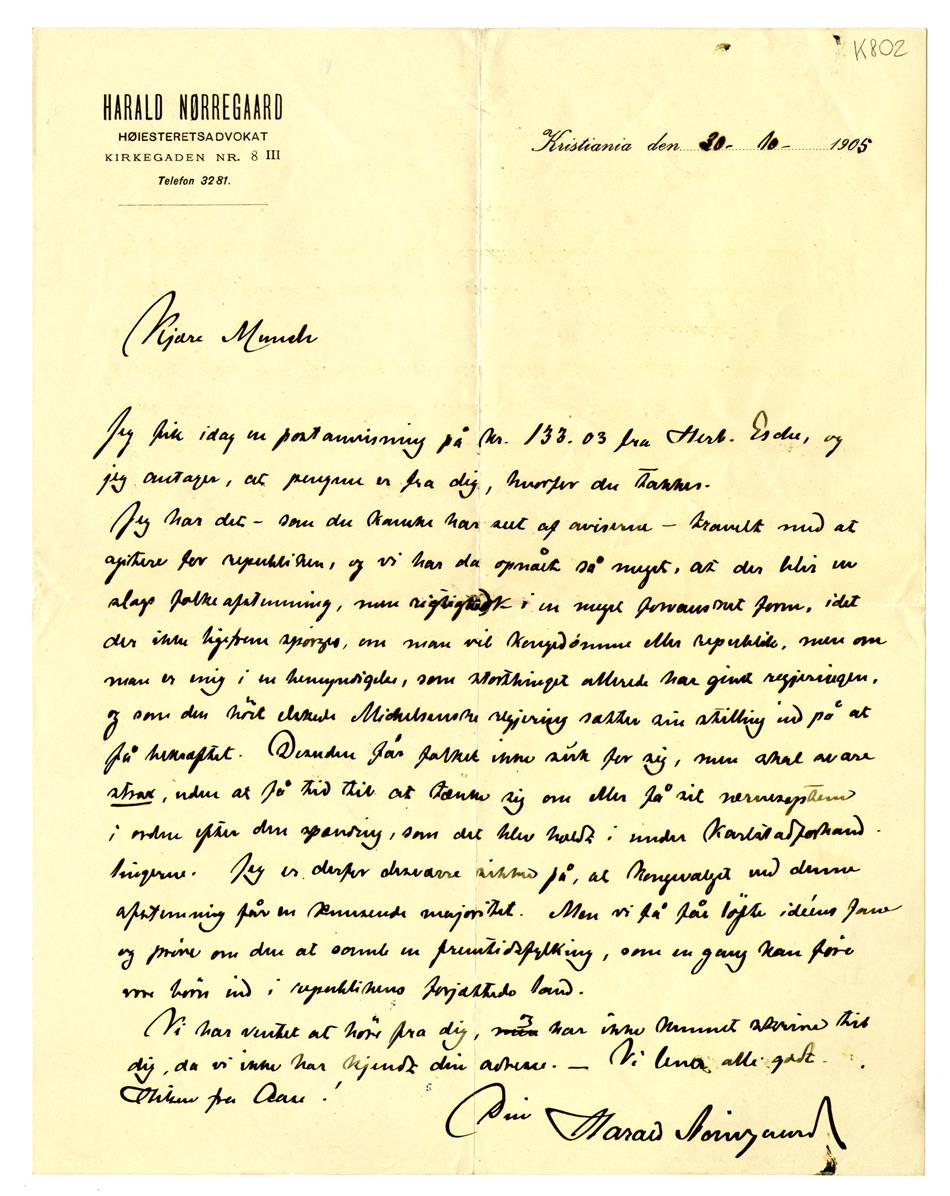 K802
HARALD NØRREGAARD
HØIESTERETSADVOKAT
KIRKEGADEN NR. 8 III
Telefon 3281.
Kristiania den 30- 10- 1905
Kjære Munch
Jeg fik idag en postanvisning på kr. 133.03 fra Herb. Esche, og
jeg antager, at pengene er fra dig, hvorfor du takkes.
Jeg har det – som du kanske har seet af aviserne – travelt med at
agitere for republiken, og vi har da opnået så meget, at der blir en
slags folkeafstemning, men rigtignok i en meget forvansket form, idet
der ikke ligefrem spørges, om man vil kongedømme eller republik, men om
man er enig i en bemyndigelse, som storthinget allerede har givet regjeringen,
og som den höit elskede Michelsenske regjering sætter sin stilling ind på at
få bekræftet. Desuden får folket ikke tid for sig, men skal svare
strax, uden at få tid til at tænke sig om eller få sit nervesystem
i orden efter den spænding, som det blev holdt i under Karlstadforhand-
lingerne. Jeg er derfor desværre sikker på, at kongevalget ved denne
afstemning får en knusende majoritet. Men vi få får løfte idéens fane
og prøve om den at samle en fremtidsfylking, som en gang kan føre
vore børn ind i republikens forjættede land.
Vi har ventet at høre fra dig, har ikke kunnet skrive til
dig, da vi ikke har kjendt din adresse. – Vi lever alle godt.
Hilsen fra Aase!
Din
Harald Nørregaard